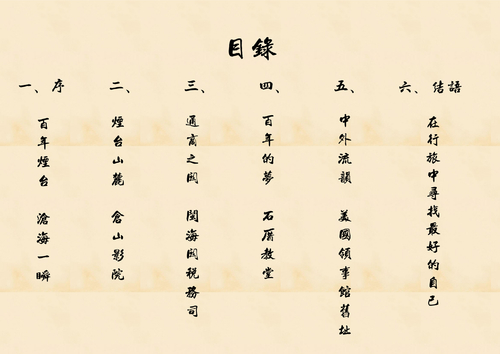 目錄
一、序
百年煙台 滄海一瞬
二、
煙台山麓 倉山影院
三、
通商之關 閩海關稅務司
四、
百年的夢 石厝教堂
五、
中外流韻 美國領事館舊址
六、結語
在行旅中尋找最好的自己